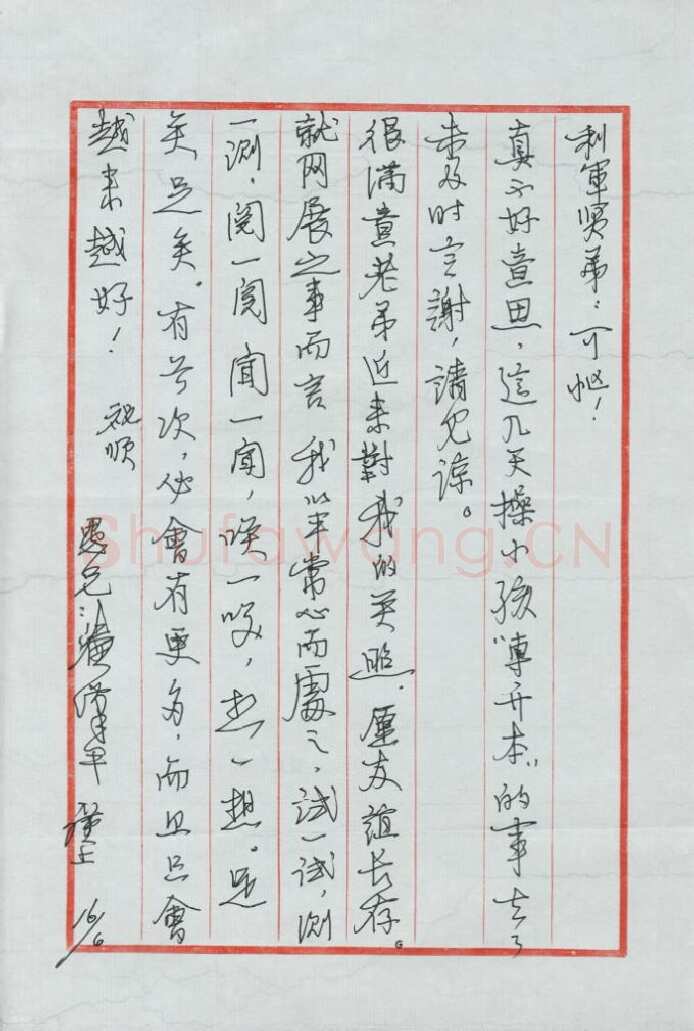 利軍贤弟：可好！
真不好意思，這几天操小孩“専升本”的事去了
未及时言謝，請见谅。
很满意老弟近来對我的关照。愿友誼长存。
就网展之事而言 我以平常心而處之，试一试，测
一测，阅一阅 闻一闻，唉一唉，想一想。足
矣，足矣。有首次，必會有更多，而且只會
越来越好！ 祝顺
愚兄 谨上 16/6
Shufawang.CN